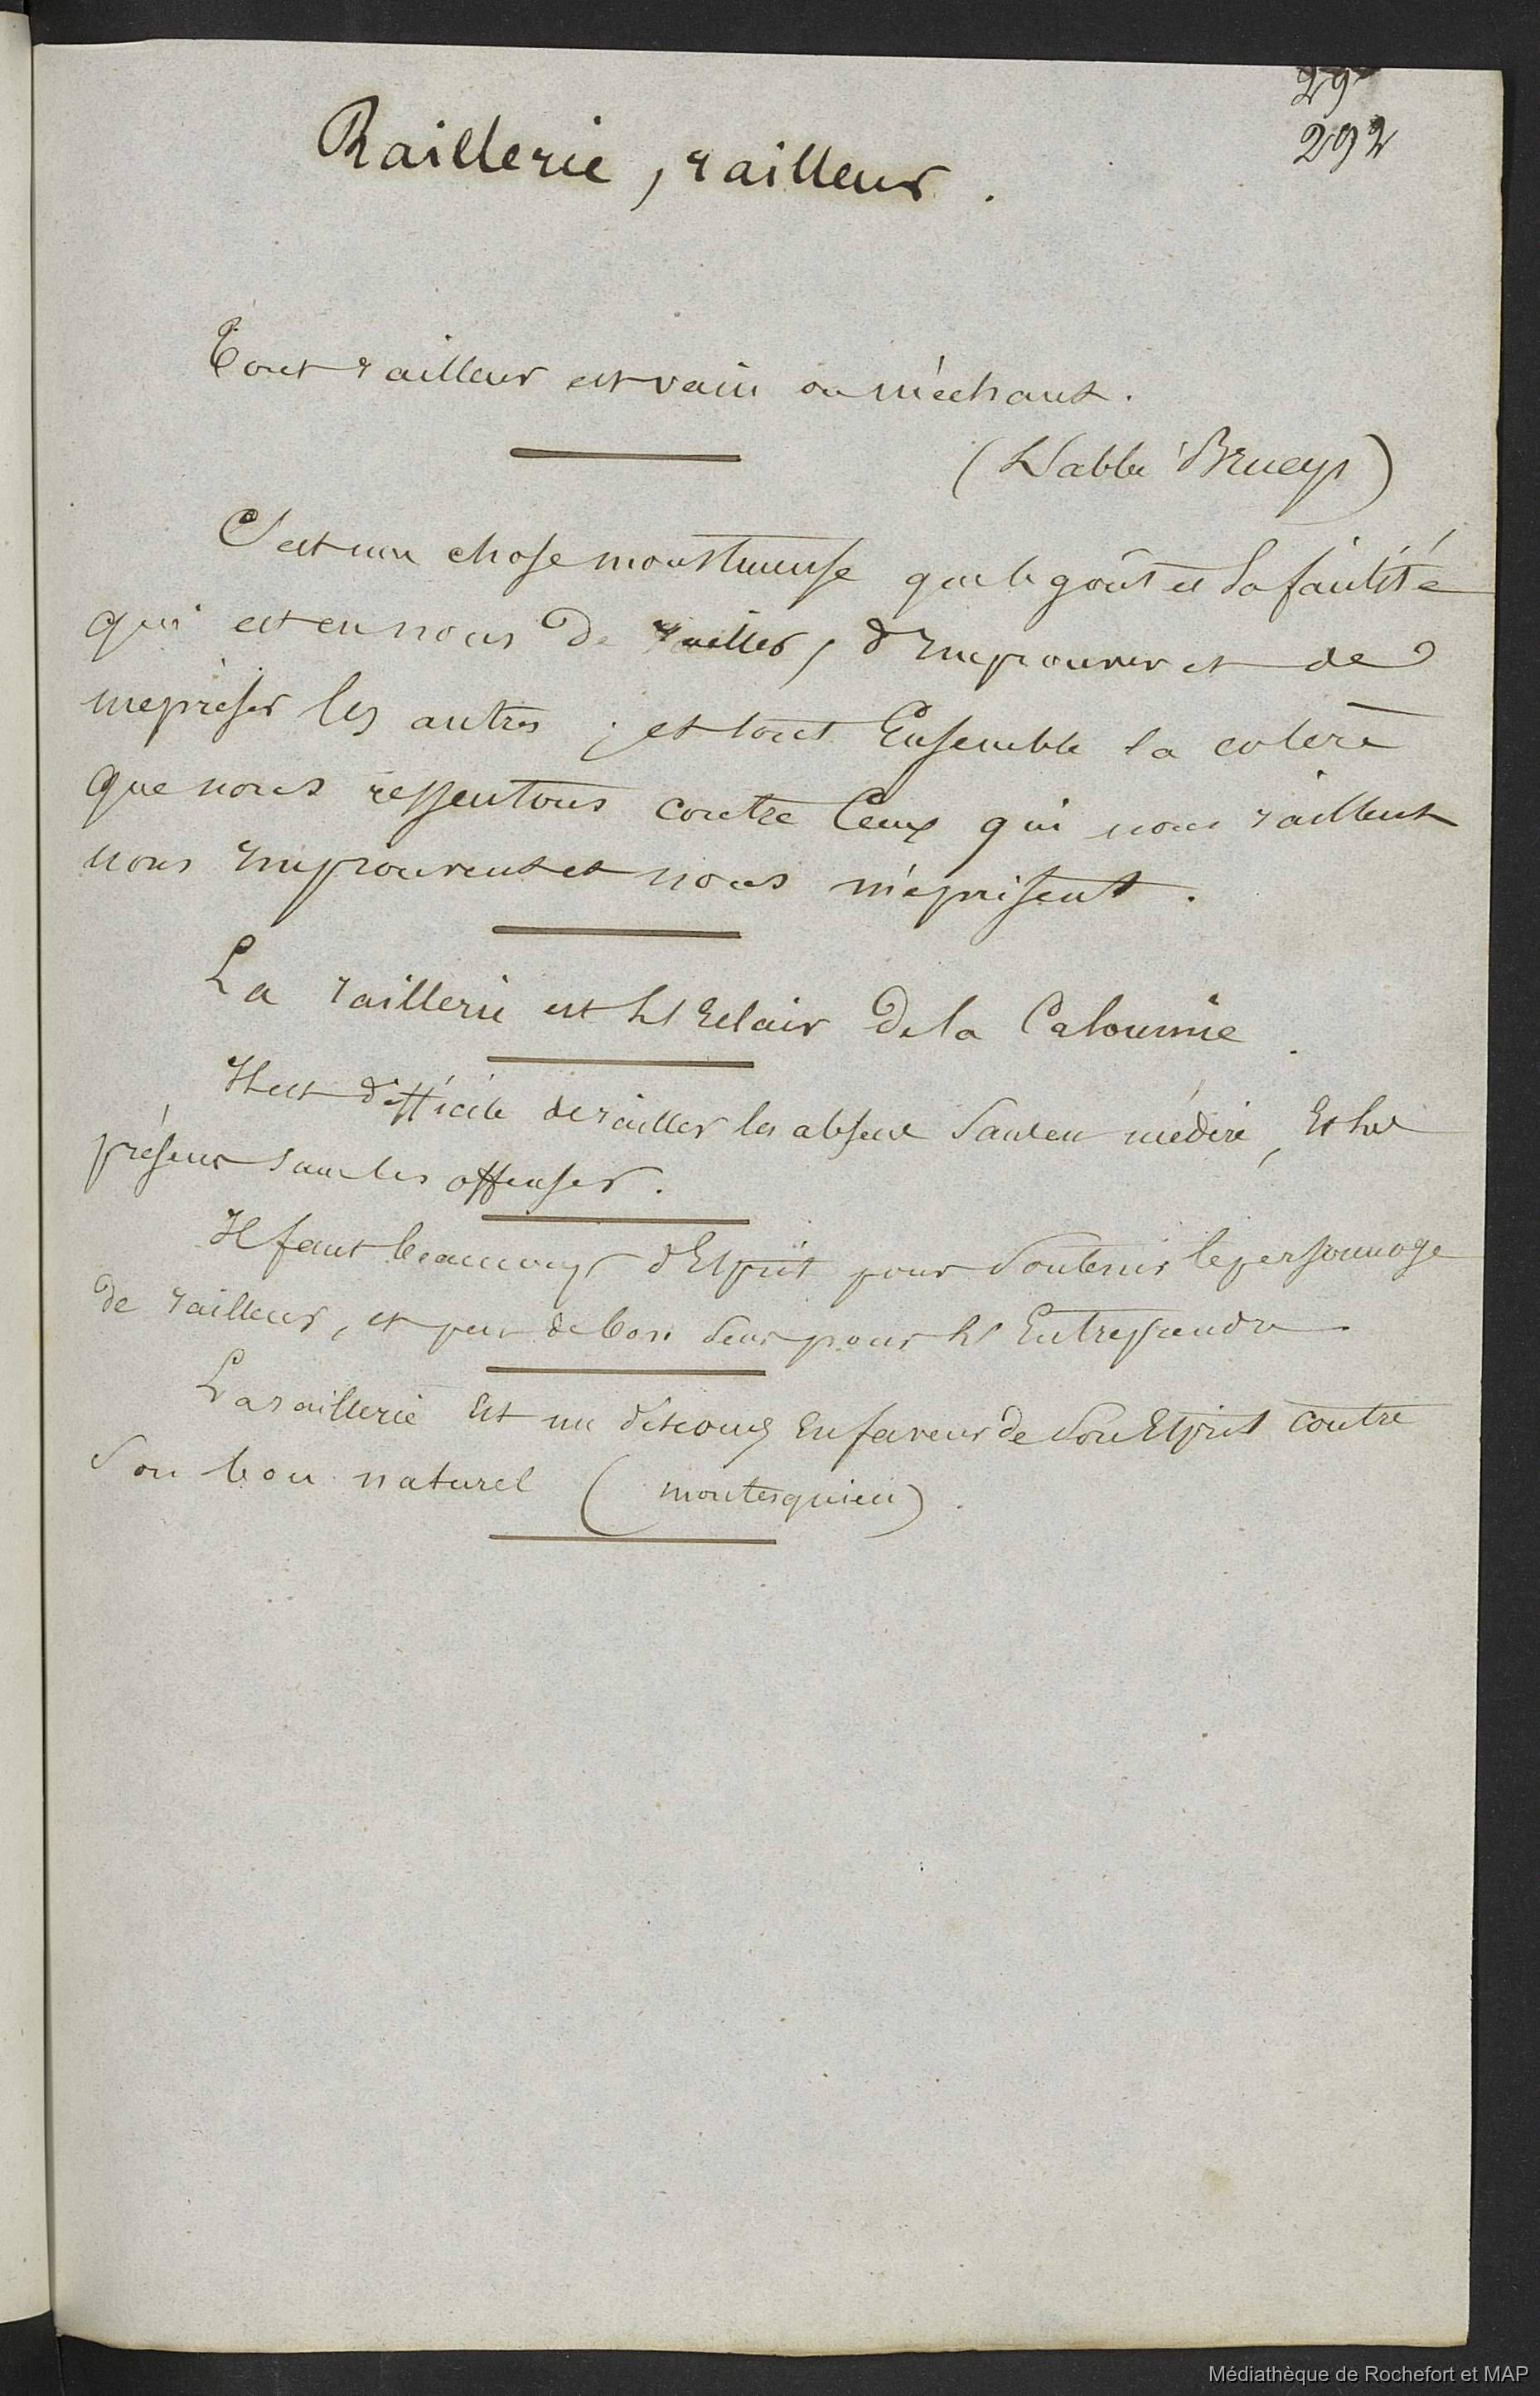 29
292
Raillerie, railleur.
Tout railleur est vain ou méchant.
(L'abbé Brueys)
C'est une chose monstrueuse que le goût et la facilité
qui est en nous de railler, d'improuver et de
mepriser les autres; et tout Ensemble la colère
que nous ressentons contre Ceux qui nous raillent
nous improuvent et nous méprisent.
La raillerie est l'Eclair de la Calomnie.
Il est difficile de railler les absens sans en médire, Et les
présens sans les offenser.
Il faut beaucoup d'Esprit pour soutenir le personnage
de railleur, et peu de bon sens pour l'Entreprendre
La raillerie Est un discours En faveur de son Esprit contre
son bon naturel (montesquieu).
Médiathèque de Rochefort et MAP